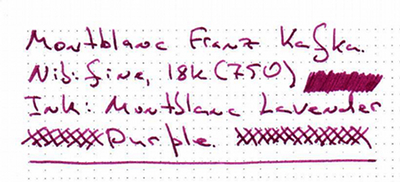 Montblanc Franz Kafka.
Nib: fine, 18k (750)
Ink: Montblanc Lavender
Purple.